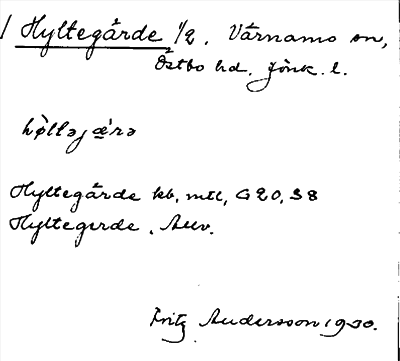 / Hyltegärde 1/2. Värnamo sn,
Östbo hd. Jönk. l.
hỳlləjæ̀rə
Hyltegärde kb, mtl, G 20, 38
Hyltegerde, Allv.
Fritz Andersson 1930.